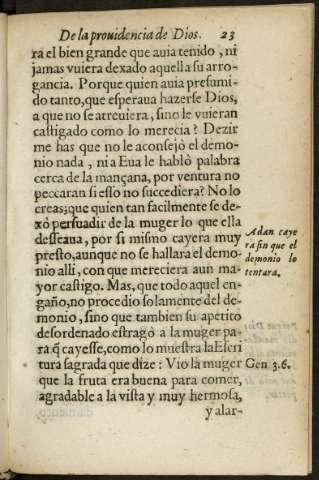 De la prouidencia de Dios. 23
ra el bien grande que auia tenido, ni
jamas vuiera dexado aquella su arro-
gancia. Porque quien auia presumi-
do tanto, que esperaua hazerse Dios,
a que no se atreuiera, sino le vuieran
castigado como lo merecia? Dezir
me has que no le aconsejò el demo-
nio nada, ni a Eua le hablò palabra
cerca de la mançana, por ventura no
peccaran si esso no succediera? No lo
creas; que quien tan facilmente se de-
xó persuadir de la muger lo que ella
desseaua, por si mismo cayera muy
presto, aunque no se hallara el demo-
nio alli, con que mereciera aun ma-
yor castigo. Mas, que todo aquel en-
gaño, no procedio solamente del de-
monio, sino que tambien su apetito
desordenado estragò a la muger pa-
ra q̃ cayesse, como lo muestra la Escri
tura sagrada que dize: Vio la muger
que la fruta era buena para comer,
agradable a la vista y muy hermosa,
y alar-
Adan caye
ra sin que el
demonio lo
tentara.
Gen 3.6.